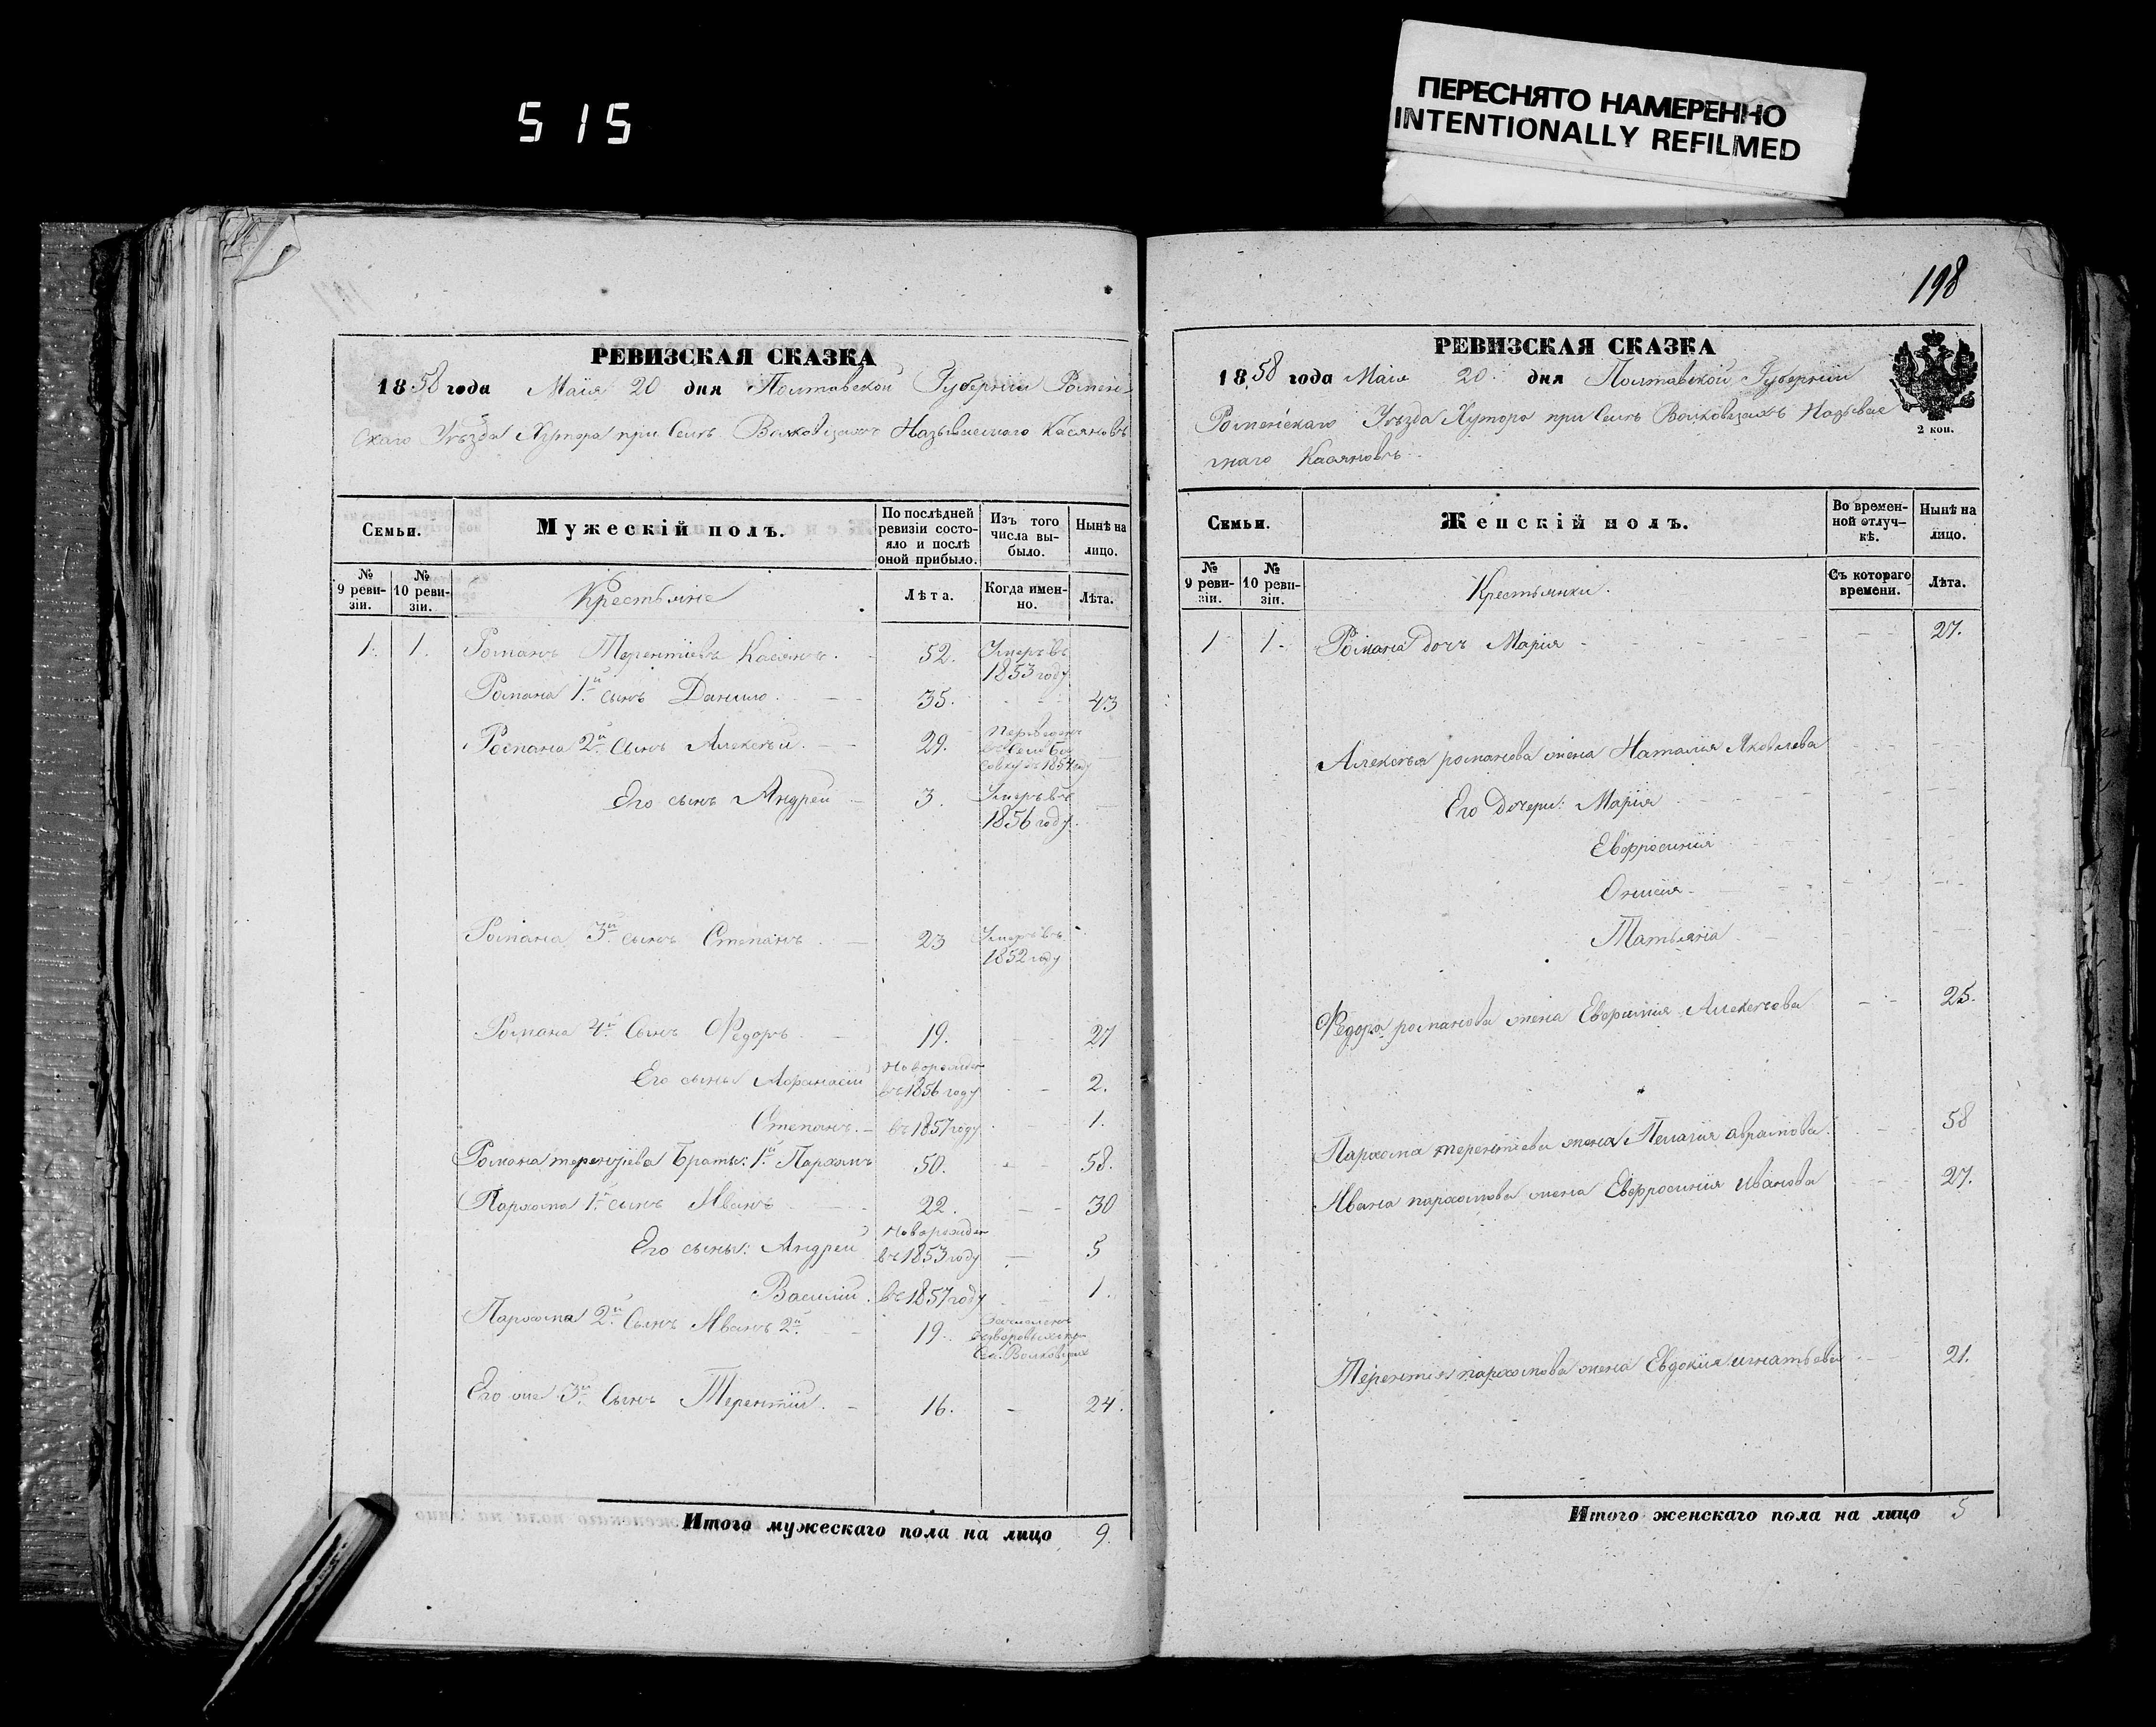 515
ПЕРЕСНЯТО НАМЕРЕННО
INTENTIONALLY REFILMED
РЕВИЗСКАЯ СКАЗКА
1858 года Маія 20 дня Полтавской Губерніи Ромен-
скаго Уѣзда Хутора при Селѣ Волковцахъ Называемаго Касяновъ
Семьи.
Мужескій полъ.
По послѣдней ревизіи состояло и послѣ оной прибыло.
Изъ того числа выбыло.
Нынѣ на лицо.
№ 9 ревизіи.
№ 10 ревизіи.
Крестьяне
Лѣта.
Когда именно.
Лѣта.
1. 1. Романъ Терентіевъ Касянъ. 52. Умеръ въ
1853 году
Романа 1й сынъ Данило. 35. 43
Романа 2й Сынъ Алексѣй. 29. Переведенъ
въ 1854 году
Его сынъ Андрей 3. Умеръ въ
1856 году.
Романа 3й сынъ Степанъ 23 Умеръ въ
1852 году
Романа 4й Сынъ Федоръ 19. 27
Его сыны Афанасій Новорожден
въ 1856 году 2.
Степанъ. въ 1857 году 1.
Романа терентіева Братъ: 1й Пархомъ 50. 58.
Пархома 1й сынъ Иванъ 22. 30
Его сыны: Андрей Новорожден
въ 1853 году 5
Василій. въ 1857 году 1.
Пархома 2й Сынъ Иванъ 2й 19. Зачисленъ
въ дворовые при
Се. Волковцахъ
Его же 3й Сынъ Терентій. 16. 24.
Итого мужескаго пола на лицо 9.
198
РЕВИЗСКАЯ СКАЗКА
1858 года Маія 20 дня Полтавской Губерніи
Роменскаго Уѣзда Хутора при Селѣ Волковцахъ Называе
маго Касяновъ
2 коп.
Семьи.
Женскій полъ.
Во временной отлучкѣ.
Нынѣ на лицо.
№ 9 ревизіи.
№ 10 ревизіи.
Крестьянки.
Съ котораго времени.
Лѣта.
1 1. Романа дочь Марія 27.
Алексѣя романова жена Наталия Яковлева
Его дочери: Марія
Евфросинія
Онисія
Татьяна
Федора романова жена Евфимія Алексѣева 25.
Пархома терентіева жена Пелагія аврамова 58
Ивана пархомова жена Евфросинія Иванова 27.
Терентія пархомова жена Евдокія игнатьева 21.
Итого женскаго пола на лицо 5